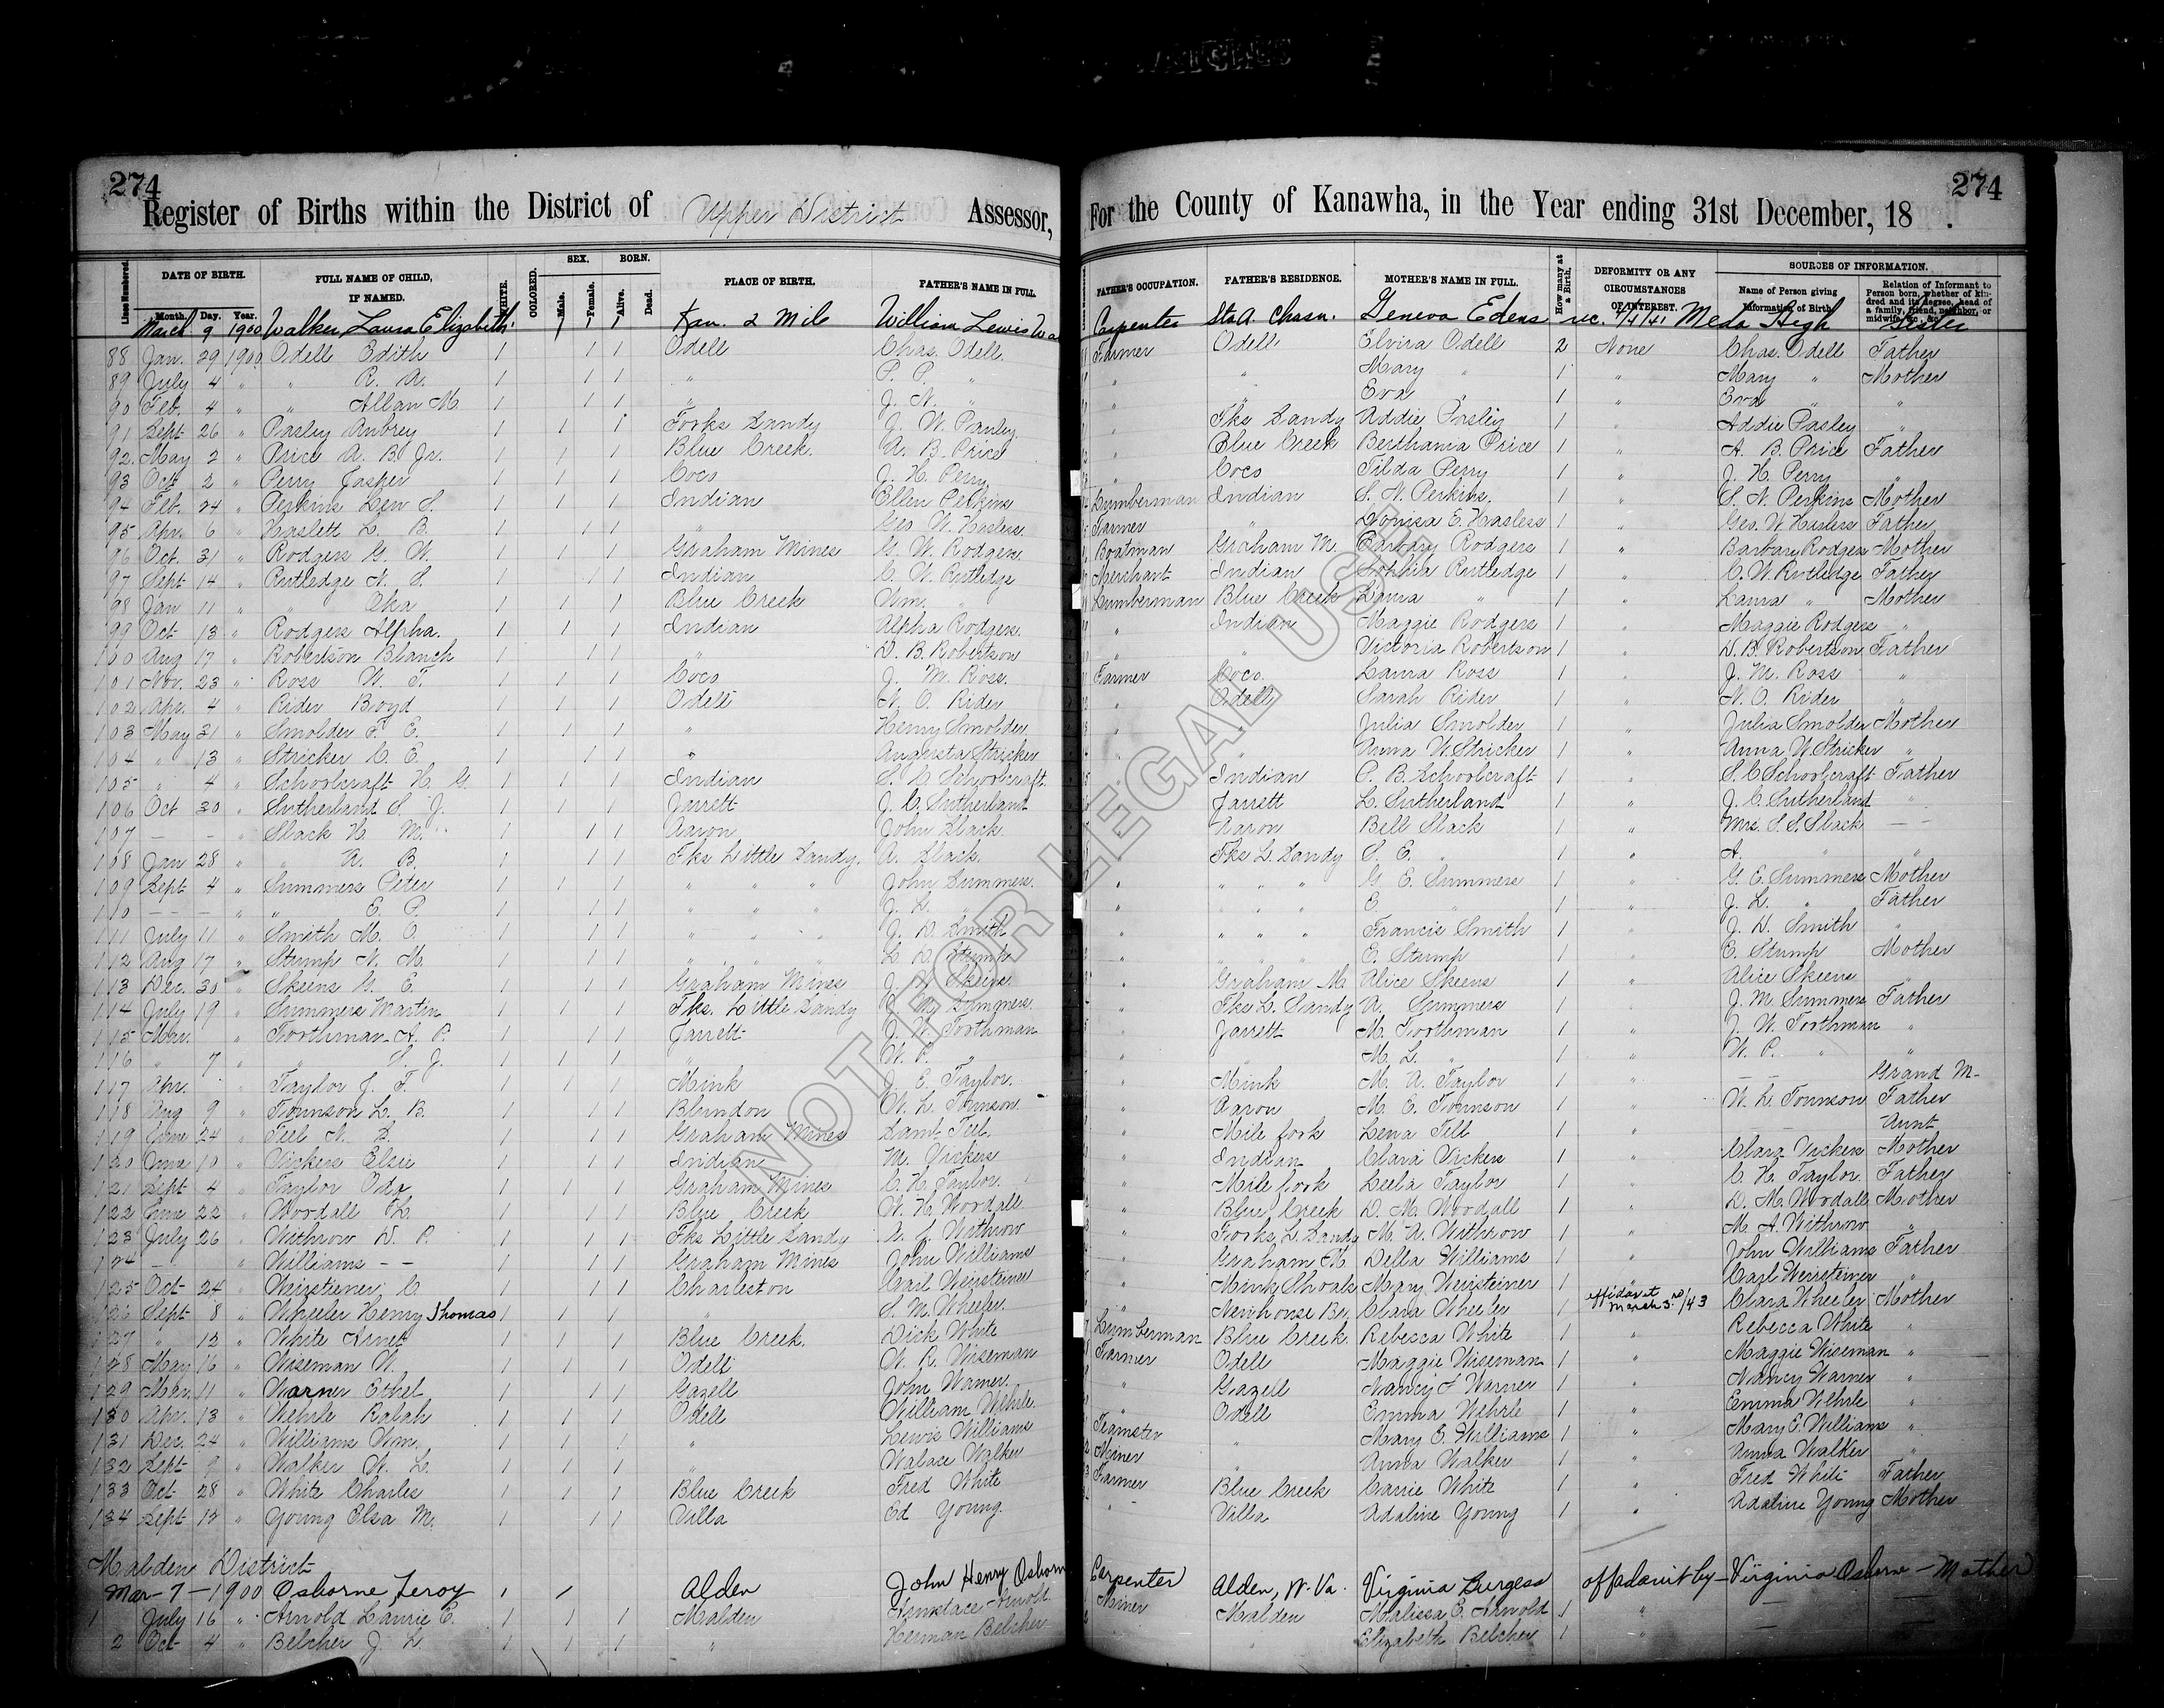 274
274
Register of Births within the District of Upper District Assessor, For the County of Kanawha, in the Year ending 31st December, 18 .
Lines Numbered. DATE OF BIRTH. Month. Day. Year. FULL NAME OF CHILD, IF NAMED. WHITE. COLORED. SEX. Male. Female. BORN. Alive. Dead. PLACE OF BIRTH. FATHER'S NAME IN FULL. FATHER'S OCCUPATION. FATHER'S RESIDENCE. MOTHER'S NAME IN FULL. How many at a Birth. DEFORMITY OR ANY CIRCUMSTANCES OF INTEREST. SOURCES OF INFORMATION. Name of Person giving Information of Birth. Relation of Informant to Person born, whether of kindred and its degree, head of a family, friend, neighbor, or midwife, &c., &c.
March 9 1900 Walker Laura Elizabeth 1 1 1 Kan. 2 Mile William Lewis Wa Carpenter Sta A Chasn. Geneva Edens rec. 1/4/41 Meda High Sister
88 Jan. 29 1900 Odell Edith 1 1 1 Odell Chas. Odell Farmer Odell Elvira Odell 2 None Chas. Odell Father
89 July 4 " " R. A. 1 1 1 " P. P. " " " Mary " 1 " Mary " Mother
90 Feb. 4 " " Allan M. 1 1 1 " J. N. " " Eva 1 " Eva " "
91 Sept 26 " Pasley Aubrey 1 1 1 Forks Sandy J. W. Pauley " Fks Sandy Addie Pasley 1 " Addie Pasley "
92 May 2 " Price A. B. Jr. 1 1 1 Blue Creek A. B. Price " Blue Creek Berthania Price 1 " A. B. Price Father
93 Oct 2 " Perry Jasper 1 1 1 Coco J. H. Perry " Coco Tilda Perry 1 " J. H. Perry "
94 Feb. 24 " Perkins Lew S. 1 1 1 Indian Ellen Perkins Lumberman Indian S. N. Perkins 1 " S. N. Perkins Mother
95 Apr. 6 " Haslett L. B. 1 1 1 " Geo W. Hasless Farmer " Louisa E. Hasless 1 " Geo. W Hasless Father
96 Oct. 31 " Rodgers G. W. 1 1 1 Graham Mines G. W. Rodgers Boatman Graham M. Barbary Rodgers 1 " Barbary Rodgers Mother
97 Sept 14 " Rutledge N. S. 1 1 1 Indian C. W. Rutledge Merchant Indian Sophia Rutledge 1 " C. W. Rutledge Father
98 Jan 11 " " Oka 1 1 1 Blue Creek Wm. " Lumberman Blue Creek Laura " 1 " Laura " Mother
99 Oct 13 " Rodgers Alpha 1 1 1 Indian Alpha Rodgers " Indian Maggie Rodgers 1 " Maggie Rodgers "
100 Aug 17 " Robertson Blanch 1 1 1 " D. B. Robertson " " Victoria Robertson 1 " D. B. Robertson Father
101 Nov. 23 " Ross W. F. 1 1 1 Coco J. M. Ross Farmer Coco Laura Ross 1 " J. M. Ross "
102 Apr. 4 " Rider Boyd 1 1 1 Odell N. O. Rider " Odell Sarah Rider 1 " N. O. Rider "
103 May 31 " Smolder P. E. 1 1 1 " Henry Smolder " " Julia Smolder 1 " Julia Smolder Mother
104 " 13 " Stricker C. E. 1 1 1 " Augusta Stricker " " Anna W. Stricker 1 " Anna W. Stricker "
105 " 4 " Schoolcraft H. G. 1 1 1 Indian S. C. Schoolcraft " Indian P. B. Schoolcraft 1 " S. C Schoolcraft Father
106 Oct 30 " Sutherland S. J. 1 1 Jarrett J. C. Sutherland " Jarrett L. Sutherland 1 " J. C. Sutherland "
107 — - " Slack H. M. 1 1 1 Aaron John Slack " Aaron Bell Slack 1 " Mrs. S. S. Slack — —
108 Jan 28 " " A. B. 1 1 1 Fks Little Sandy A. Slack " Fks L. Sandy S. E. " 1 " A. " "
109 Sept 4 " Summers Peter 1 1 1 " " " John Summers " " " " G. E. Summers 1 " G. E. Summers Mother
110 — — " " E. P. 1 1 1 " " " J. L. " " " " " E. " 1 " J. L. " Father
111 July 11 " Smith M. O. 1 1 1 " " " J. D. Smith " " " " Francis Smith 1 " J. D. Smith "
112 Aug 17 " Stump N. M. 1 1 1 " " " L. D. Stump " " " " E. Stump 1 " E. Stump Mother
113 Dec. 30 " Skeens G. E. 1 1 1 Graham Mines J. W. Skeens " Graham M. Alice Skeens 1 " Alice Skeens "
114 July 19 " Summers Martin 1 1 1 Fks. Little Sandy J. M. Summers " Fks L. Sandy A. Summers 1 " J. M. Summers Father
115 Mar. " Toothman A. P. 1 1 1 Jarrett J. W. Toothman " Jarrett M. Toothman 1 " J. W. Toothman "
116 " 7 " " S. J. 1 1 1 " W. P. " " " M. L. " 1 " W. P. " "
117 Apr. " Taylor J. F. 1 1 1 Mink J. E. Taylor " Mink M. A. Taylor 1 " — — Grand M-
118 Aug 9 " Tounson L. B. 1 1 1 Blundon W. L. Tounson " Aaron M. E. Tounson 1 " W. L. Tounson Father
119 June 24 " Teel N. S. 1 1 1 Graham Mines Saml Teel " Mile fork Lena Tell 1 " — Aunt
120 June 10 " Vickers Elsie 1 1 1 Indian M. Vickers " Indian Clara Vickers 1 " Clara Vickers Mother
121 Sept 4 " Taylor Oda 1 1 1 Graham Mines C. H. Taylor " Mile fork Leela Taylor 1 " C. H. Taylor Father
122 June 22 " Wordall L. 1 1 1 Blue Creek W. H. Wordall " Blue Creek D. M. Wordall 1 " D. M. Wordall Mother
123 July 26 " Withrow D. P. 1 1 1 Fks Little Sandy A. J. Withrow " Forks L. Sandy M. A. Withrow 1 " M. A. Withrow "
124 — " Williams — — 1 1 1 Graham Mines John Williams " Graham M. Della Williams 1 " John Williams Father
125 Oct 24 " Weirsteiner C. 1 1 1 Charleston Carl Weirsteiner " Mink Shoals Mary Weirsteiner 1 " Carl Weirsteiner "
126 Sept 8 " Wheeler Henry Thomas 1 1 1 " S. M. Wheeler " Newhouse Br. Clara Wheeler 1 affidavit March 3rd/43 Clara Wheeler Mother
127 " 12 " White Arnet 1 1 1 Blue Creek Dick White Lumberman Blue Creek Rebecca White 1 " Rebecca White "
128 May 16 " Wiseman W. 1 1 1 Odell W. R. Wiseman Farmer Odell Maggie Wiseman 1 " Maggie Wiseman "
129 Mar. 11 " Warner Ethel 1 1 1 Gazell John Warner " Gazell Nancy J Warner 1 " Nancy Warner "
130 Apr. 13 " Wehrle Ralah 1 1 1 Odell William Wehrle " Odell Emma Wehrle 1 " Emma Wehrle "
131 Dec. 24 " Williams Wm. 1 1 1 " Lewis Williams Teamster " Mary E. Williams 1 " Mary E. Williams "
132 Sept 9 " Walker W. L. 1 1 1 " Walace Walker Miner " Anna Walker 1 " Anna Walker "
133 Oct 28 " White Charles 1 1 1 Blue Creek Fred White Farmer Blue Creek Carrie White 1 " Fred White Father
134 Sept 12 " Young Elsa M. 1 1 1 Villa Ed Young " Villa Adaline Young 1 " Adaline Young Mother
Malden District
Mar 7 - 1900 Osborne Jeroy 1 / Alden John Henry Osborn Carpenter Alden, W. Va. Virginia Burgess offadavit by - Virginia Osborne - Mother
1 July 16 " Arnold Laurie E. 1 1 1 Malden Arnold Miner Malden Malissa E. Arnold 1 " —
2 Oct 4 " Belcher J. L. 1 1 1 " Herman Belcher " " Elizabeth Belcher 1 " —
NOT FOR LEGAL USE